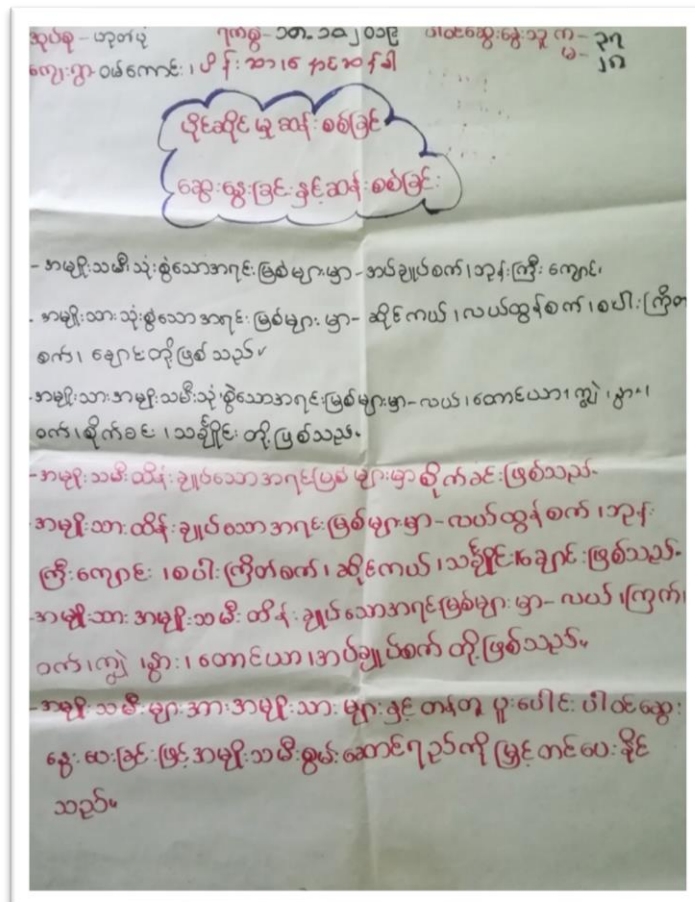 အုပ်စု - ဟုတ်ပုံ ရက်စွဲ - ၁၈.၁၁.၂၀၁၉ ပါဝင်ဆွေးနွေးသူ ကျ - ၃၇
ကျေးရွာ - ဝမ်ကောင်း၊ မ - ၂၈
ပိုင်ဆိုင်မှု ဆန်းစစ်ခြင်း
ဆွေးနွေးခြင်းနှင့်ဆန်းစစ်ခြင်း
- အမျိုးသမီးသုံးစွဲသောအရင်းမြစ်များမှာ - အပ်ချုပ်စက်၊ ဘုန်းကြီးကျောင်း၊
- အမျိုးသားသုံးစွဲသောအရင်းမြစ်များမှာ - ဆိုင်ကယ်၊ လယ်ထွန်စက်၊ စပါးကြိတ်
စက်၊ ချောင်းတို့ဖြစ်သည်။
- အမျိုးသားအမျိုးသမီးသုံးစွဲသောအရင်းမြစ်များမှာ - လယ်၊ တောင်ယာ၊ ကျွဲ၊ နွား၊
ဝက်၊ စိုက်ခင်း၊ သင်္ချိုင်းတို့ဖြစ်သည်။
- အမျိုးသမီးထိန်းချုပ်သောအရင်းမြစ်များမှာ စိုက်ခင်းဖြစ်သည်။
- အမျိုးသားထိန်းချုပ်သောအရင်းမြစ်များမှာ - လယ်ထွန်စက်၊ ဘုန်း
ကြီးကျောင်း၊ စပါးကြိတ်စက်၊ ဆိုင်ကယ်၊ သင်္ချိုင်း၊ ချောင်းဖြစ်သည်။
- အမျိုးသားအမျိုးသမီးထိန်းချုပ်သောအရင်းမြစ်များမှာ - လယ်၊ ကြက်၊
ဝက်၊ ကျွဲ၊ နွား၊ တောင်ယာ၊ အပ်ချုပ်စက်တို့ဖြစ်သည်။
- အမျိုးသမီးများအားအမျိုးသားများနှင့်တန်းတူပူးပေါင်းပါဝင်ဆွေး
နွေးပေးခြင်းဖြင့်အမျိုးသမီးစွမ်းဆောင်ရည်ကိုမြှင့်တင်ပေးနိုင်
သည်။